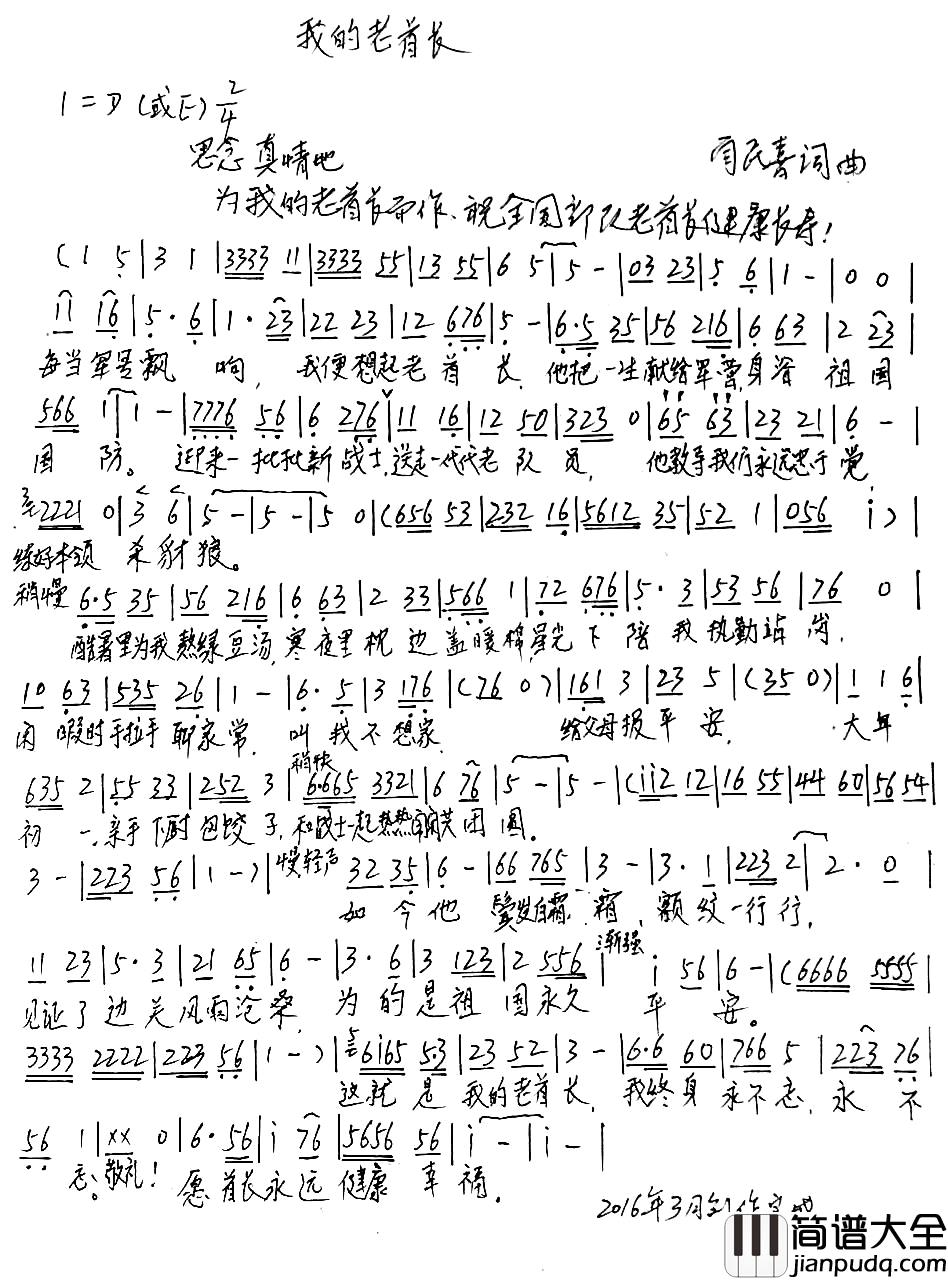 我的老首长
1=D (或E) 2/4
思念 真情地
民喜词曲
为我的老首长而作、祝全国部队老首长健康长寿!
(1 5|3 1|3333 11|3333 55|13 55|6 5|5 -|03 23|5 6|1 -|0 0|
11 16|5· 6|1· 23|22 23|12 676|5 -|6·5 35|56 216|6 63|2 23|
每当军号飘响, 我便想起老首长, 他把一生献给军营身 祖国
566 1|1 -|7776 56|6 276|11 16|12 50|323 0|65 63|23 21|6 -|
国防。迎来一批批新战士,送走一代代老队员, 他教导我们永远忠于党
2221 0|3 6|5 -|5 -|5 0|(656 53|232 16|5612 35|52 1|056 i)|
练好本领 杀豺狼。
稍慢 6·5 35|56 216|6 63|2 33|566 1|72 676|5· 3|53 56|76 0|
酷暑里为我熬绿豆汤,寒夜里枕边盖暖棉,星光下陪我执勤站岗,
10 63|535 26|1 -|6· 5|3 176|(76 0)|161 3|23 5|(35 0)|1 1 6|
闲暇时手拉手聊家常, 叫我不想家, 给父母报平安, 大年
稍快
635 2|55 33|252 3|6·665 3321|6 76|5 -|5 -|(ii2 12|16 55|44 60|56 54|
初一,亲手下厨包饺子,和战士一起热热闹闹共团圆。
3 -|223 56|1 -)|慢轻声 32 35|6 -|66 765|3 -|3· 1|223 2|2· 0|
如今他 鬓发白霜霜,额纹一行行,
渐强
11 23|5· 3|21 65|6 -|3· 6|3 123|2 556|i 56|6 -|(6666 5555|
见证了边关风雨沧桑, 为的是祖国永久平安。
3333 2222|223 56|1 -)|6i65 5·3|23 52|3 -|6·6 60|766 5|223 76|
这就是我的老首长, 我终身永不忘,永不
56 1|xx 0|6· 56|i 76|5656 56|i -|i -|
忘。敬礼! 愿首长永远健康幸福。
2016年3月创作
简谱大全
jianpudq.com